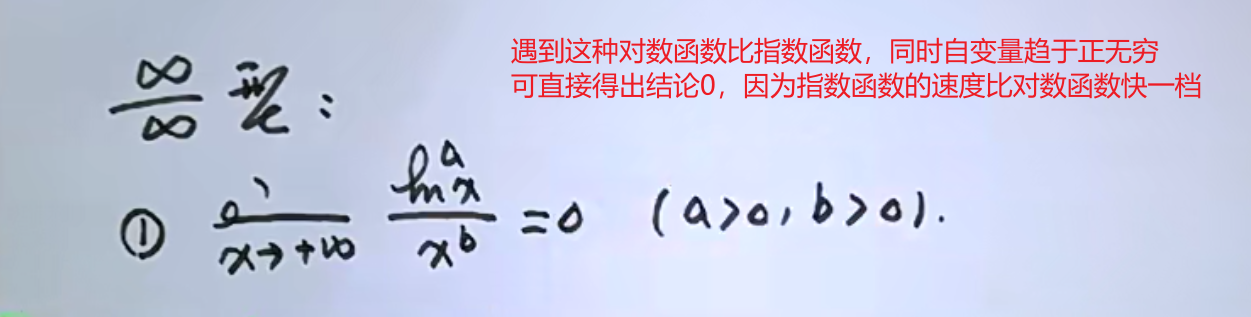 遇到这种对数函数比指数函数，同时自变量趋于正无穷
可直接得出结论0，因为指数函数的速度比对数函数快一档
∞/∞ 型：
① lim x→+∞ ln^a x / x^b = 0 (a>0, b>0).